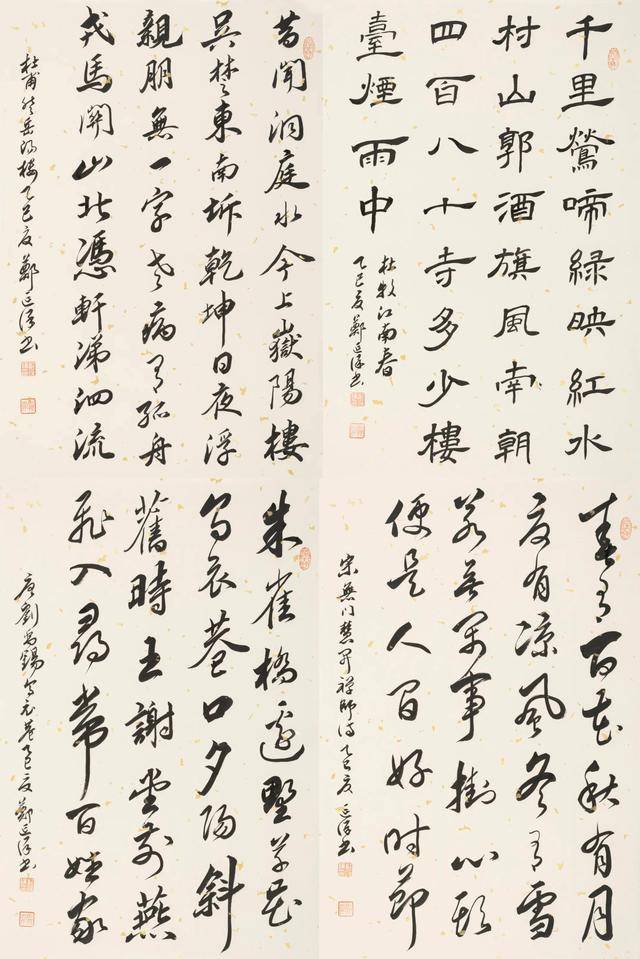 千里鶯啼緑映紅水
村山郭酒旗風南朝
四百八十寺多少樓
臺煙雨中
杜牧江南春
乙巳夏鄭延書
昔聞洞庭水今上嶽陽樓
吳楚東南坼乾坤日夜浮
親朋無一字老病有孤舟
戎馬關山北憑軒涕泗流
杜甫登岳陽樓乙巳夏鄭延書
春有百花秋有月
夏有凉風冬有雪
若無閑事掛心頭
便是人間好时節
宋無門慧開禪師詩乙巳夏延書
朱雀橋邊野草花
烏衣巷口夕陽斜
舊時王謝堂前燕
飛入尋常百姓家
唐劉禹錫烏衣巷乙巳夏鄭延書